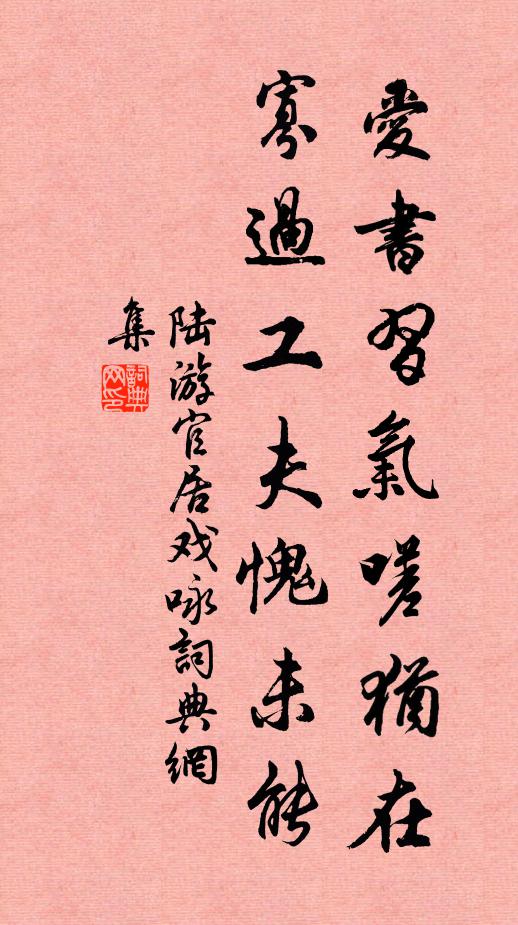 愛書習氣嗟猶在
寡過工夫愧未能
陆游官居戏咏詞典網
集
詞典网印